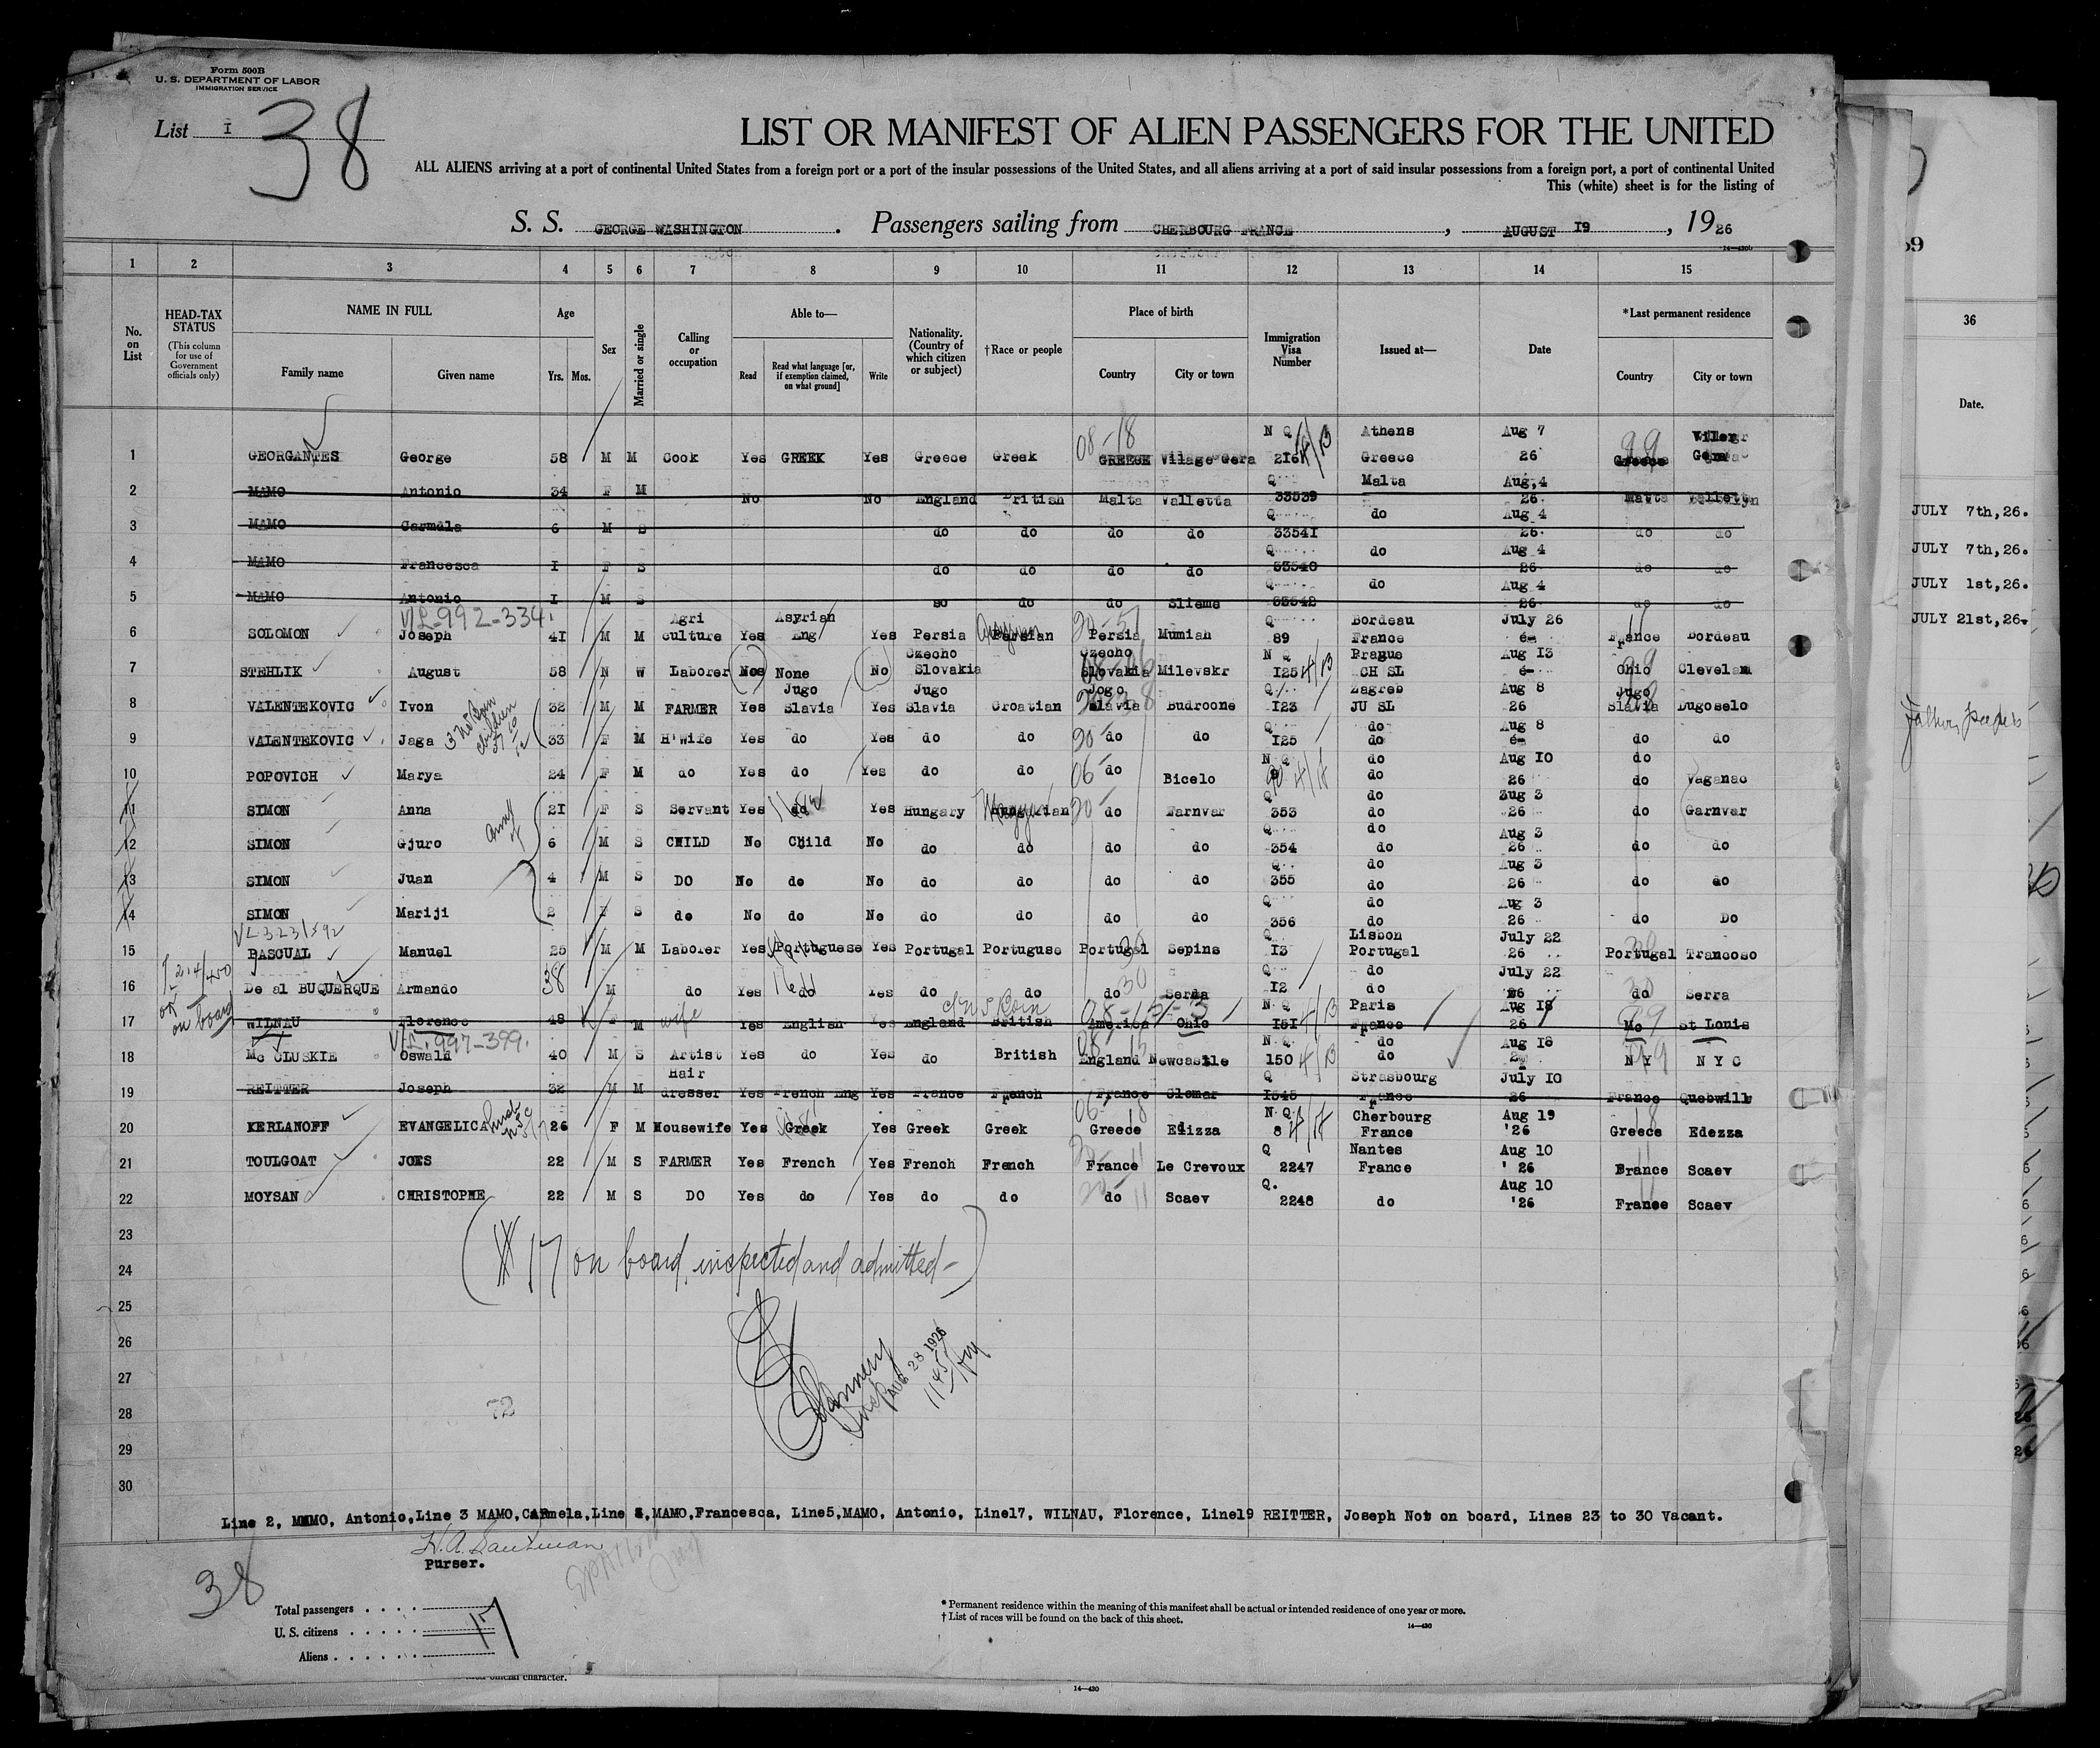 Form 500B
U. S. DEPARTMENT OF LABOR
IMMIGRATION SERVICE
List I 38
LIST OR MANIFEST OF ALIEN PASSENGERS FOR THE UNITED
ALL ALIENS arriving at a port of continental United States from a foreign port or a port of the insular possessions of the United States, and all aliens arriving at a port of said insular possessions from a foreign port, a port of continental United
This (white) sheet is for the listing of
S. S. GEORGE WASHINGTON . Passengers sailing from CHERBOURG FRANCE , AUGUST 19 , 1926
1 2 3 4 5 6 7 8 9 10 11 12 13 14 15
No. on List
HEAD-TAX STATUS
(This column for use of Government officials only)
NAME IN FULL
Family name Given name
Age
Yrs. Mos.
Sex
Married or single
Calling or occupation
Able to—
Read Read what language [or, if exemption claimed, on what ground] Write
Nationality. (Country of which citizen or subject)
†Race or people
Place of birth
Country City or town
Immigration Visa Number
Issued at—
Date
*Last permanent residence
Country City or town
36
Date.
1 GEORGANTES George 58 M M Cook Yes GREEK Yes Greece Greek 08-18 GREECE Vilage Gera N Q 216 4/B Athens Greece Aug 7 26 99 Greece Gera
2 MAMO Antonio 34 F M No No England Britian Malta Valletta Q 33539 Malta Aug,4 26. Malta
3 MAMO Carmela 6 M S do do do do Q 33541 do Aug 4 26. do do
4 MAMO Francesca I F S do do do do Q 33540 do Aug 4 26 do do
5 MAMO Antonio I M S so do do Slieme Q 33542 do Aug 4 26 do do
V/L-992-334.
6 SOLOMON Joseph 41 M M Agri culture Yes Asyrian Eng Yes Persia Persian Persia Mumiah Q 89 Bordeau France July 26 France Bordeau
7 STEHLIK August 58 N W Laborer Nos None No Czecho Slovakia Czecho Slovakia Milevskr N Q 125 4/B Prague CH SL Aug 13 Ohio Clevelam
8 VALENTEKOVIC Ivon 32 M M FARMER Yes Jugo Slavia Yes Jugo Slavia Croatian Jogo Slavia Budroone Q 123 Zagreb JU SL Aug 8 26 Jugo Slavia Dugoselo
9 VALENTEKOVIC Jaga 33 F M H'wife Yes do Yes do do do do Q 125 do do Aug 8 do do
10 POPOVICH Marya 24 F M do Yes do Yes do do 06 do Bicelo N Q 4/B do do Aug 10 26 do do Vaganac
11 SIMON Anna 21 F S Servant Yes do Yes Hungary do Farnvar Q 353 do do Aug 3 26 do Garnvar
12 SIMON Gjuro 6 M S CHILD No Child No do do do do Q 354 do do Aug 3 26 do do
13 SIMON Juan 4 M S DO No do No do do do do Q 355 do do Aug 3 26 do do
14 SIMON Mariji 2 F S do No do No do do do do 356 do do Aug 3 26 do Do
15 PASCUAL Manuel 25 M M Laborer Yes Portuguese Yes Portugal Portuguse Portugal Sepins Q 13 Lisbon Portugal July 22 26 Portugal Trancoso
16 De al BUQUERQUE Armando 38 M do Yes do Yes do do do Serda Q 12 do do July 22 26 do Serra
OK on board
17 WILNAU Florence 48 F M wife Yes English Yes England British America Ohio N Q 151 4/B Paris France Aug 18 26 Mo St Louis
V/L.997-399.
18 Mc CLUSKIE Oswald 40 M S Artist Yes do Yes do British England Newcastle N Q 150 4/B do do Aug 18 N Y N Y C
19 REITTER Joseph 32 M M Hair dresser Yes French Eng Yes France French France Clomar Q 1545 Strasbourg France July 10 26 France Quebwill
20 KERLANOFF EVANGELICA 26 F M Housewife Yes Greek Yes Greek Greek Greece Edizza N Q 8 Cherbourg France Aug 19 '26 Greece Edezza
21 TOULGOAT JOES 22 M S FARMER Yes French Yes French French France Le Crevoux Q 2247 Nantes France Aug 10 ' 26 France Scaev
22 MOYSAN CHRISTOPHE 22 M S DO Yes do Yes do do do Scaev Q. 2248 do Aug 10 '26 France Scaev
23
24
(17 on board, inspected and admitted-)
25
26
27
28
29
30
Insp AUG 28 1926
72
Line 2, MAMO, Antonio,Line 3 MAMO,CARmela,Line 4,MAMO,Francesca, Line5,MAMO, Antonio, Line17, WILNAU, Florence, Line19 REITTER, Joseph Not on board, Lines 23 to 30 Vacant.
Purser.
38
Total passengers . . . .
U. S. citizens . . . . . 17
Aliens . . . . . .
* Permanent residence within the meaning of this manifest shall be actual or intended residence of one year or more.
† List of races will be found on the back of this sheet.
14—430
official character.
14—430
JULY 7th,26.
JULY 7th,26.
JULY 1st,26.
JULY 21st,26.